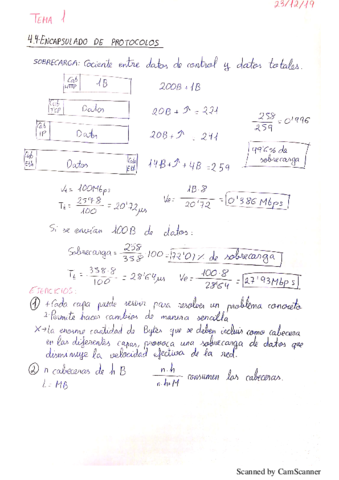 23/12/19
TEMA 1
4.4-ENCAPSULADO DE PROTOCOLOS
SOBRECARGA: Cociente entre datos de control y datos totales.
Cab HTTP 1B 200B+1B
Cab TCP Datos 20B+↗ = 221
258/259 = 0'996
Cab IP Datos 20B+↗ = 241
99'6% de sobrecarga
Cab Eth Datos Cab Eth 14B+↗+4B = 259
Vt = 100Mbps
Tt = 259·8/100 = 20'72 µs Ve = 1B·8/20'72 = 0'386 Mbps
Si se envían 100B de datos:
Sobrecarga = 258/358·100 = 72'07% de sobrecarga
Tt = 358·8/100 = 28'64 µs Ve = 100·8/28'64 = 27'93 Mbps
EJERCICIOS:
① + Cada capa puede servir para resolver un problema concreto
+ Permite hacer cambios de manera sencilla
X → La enorme cantidad de Bytes que se deben incluir como cabecera
en las diferentes capas, provoca una sobrecarga de datos que
disminuye la velocidad efectiva de la red.
② n cabeceras de h B n·h/n·h+M consumen las cabeceras.
L: MB
Scanned by CamScanner